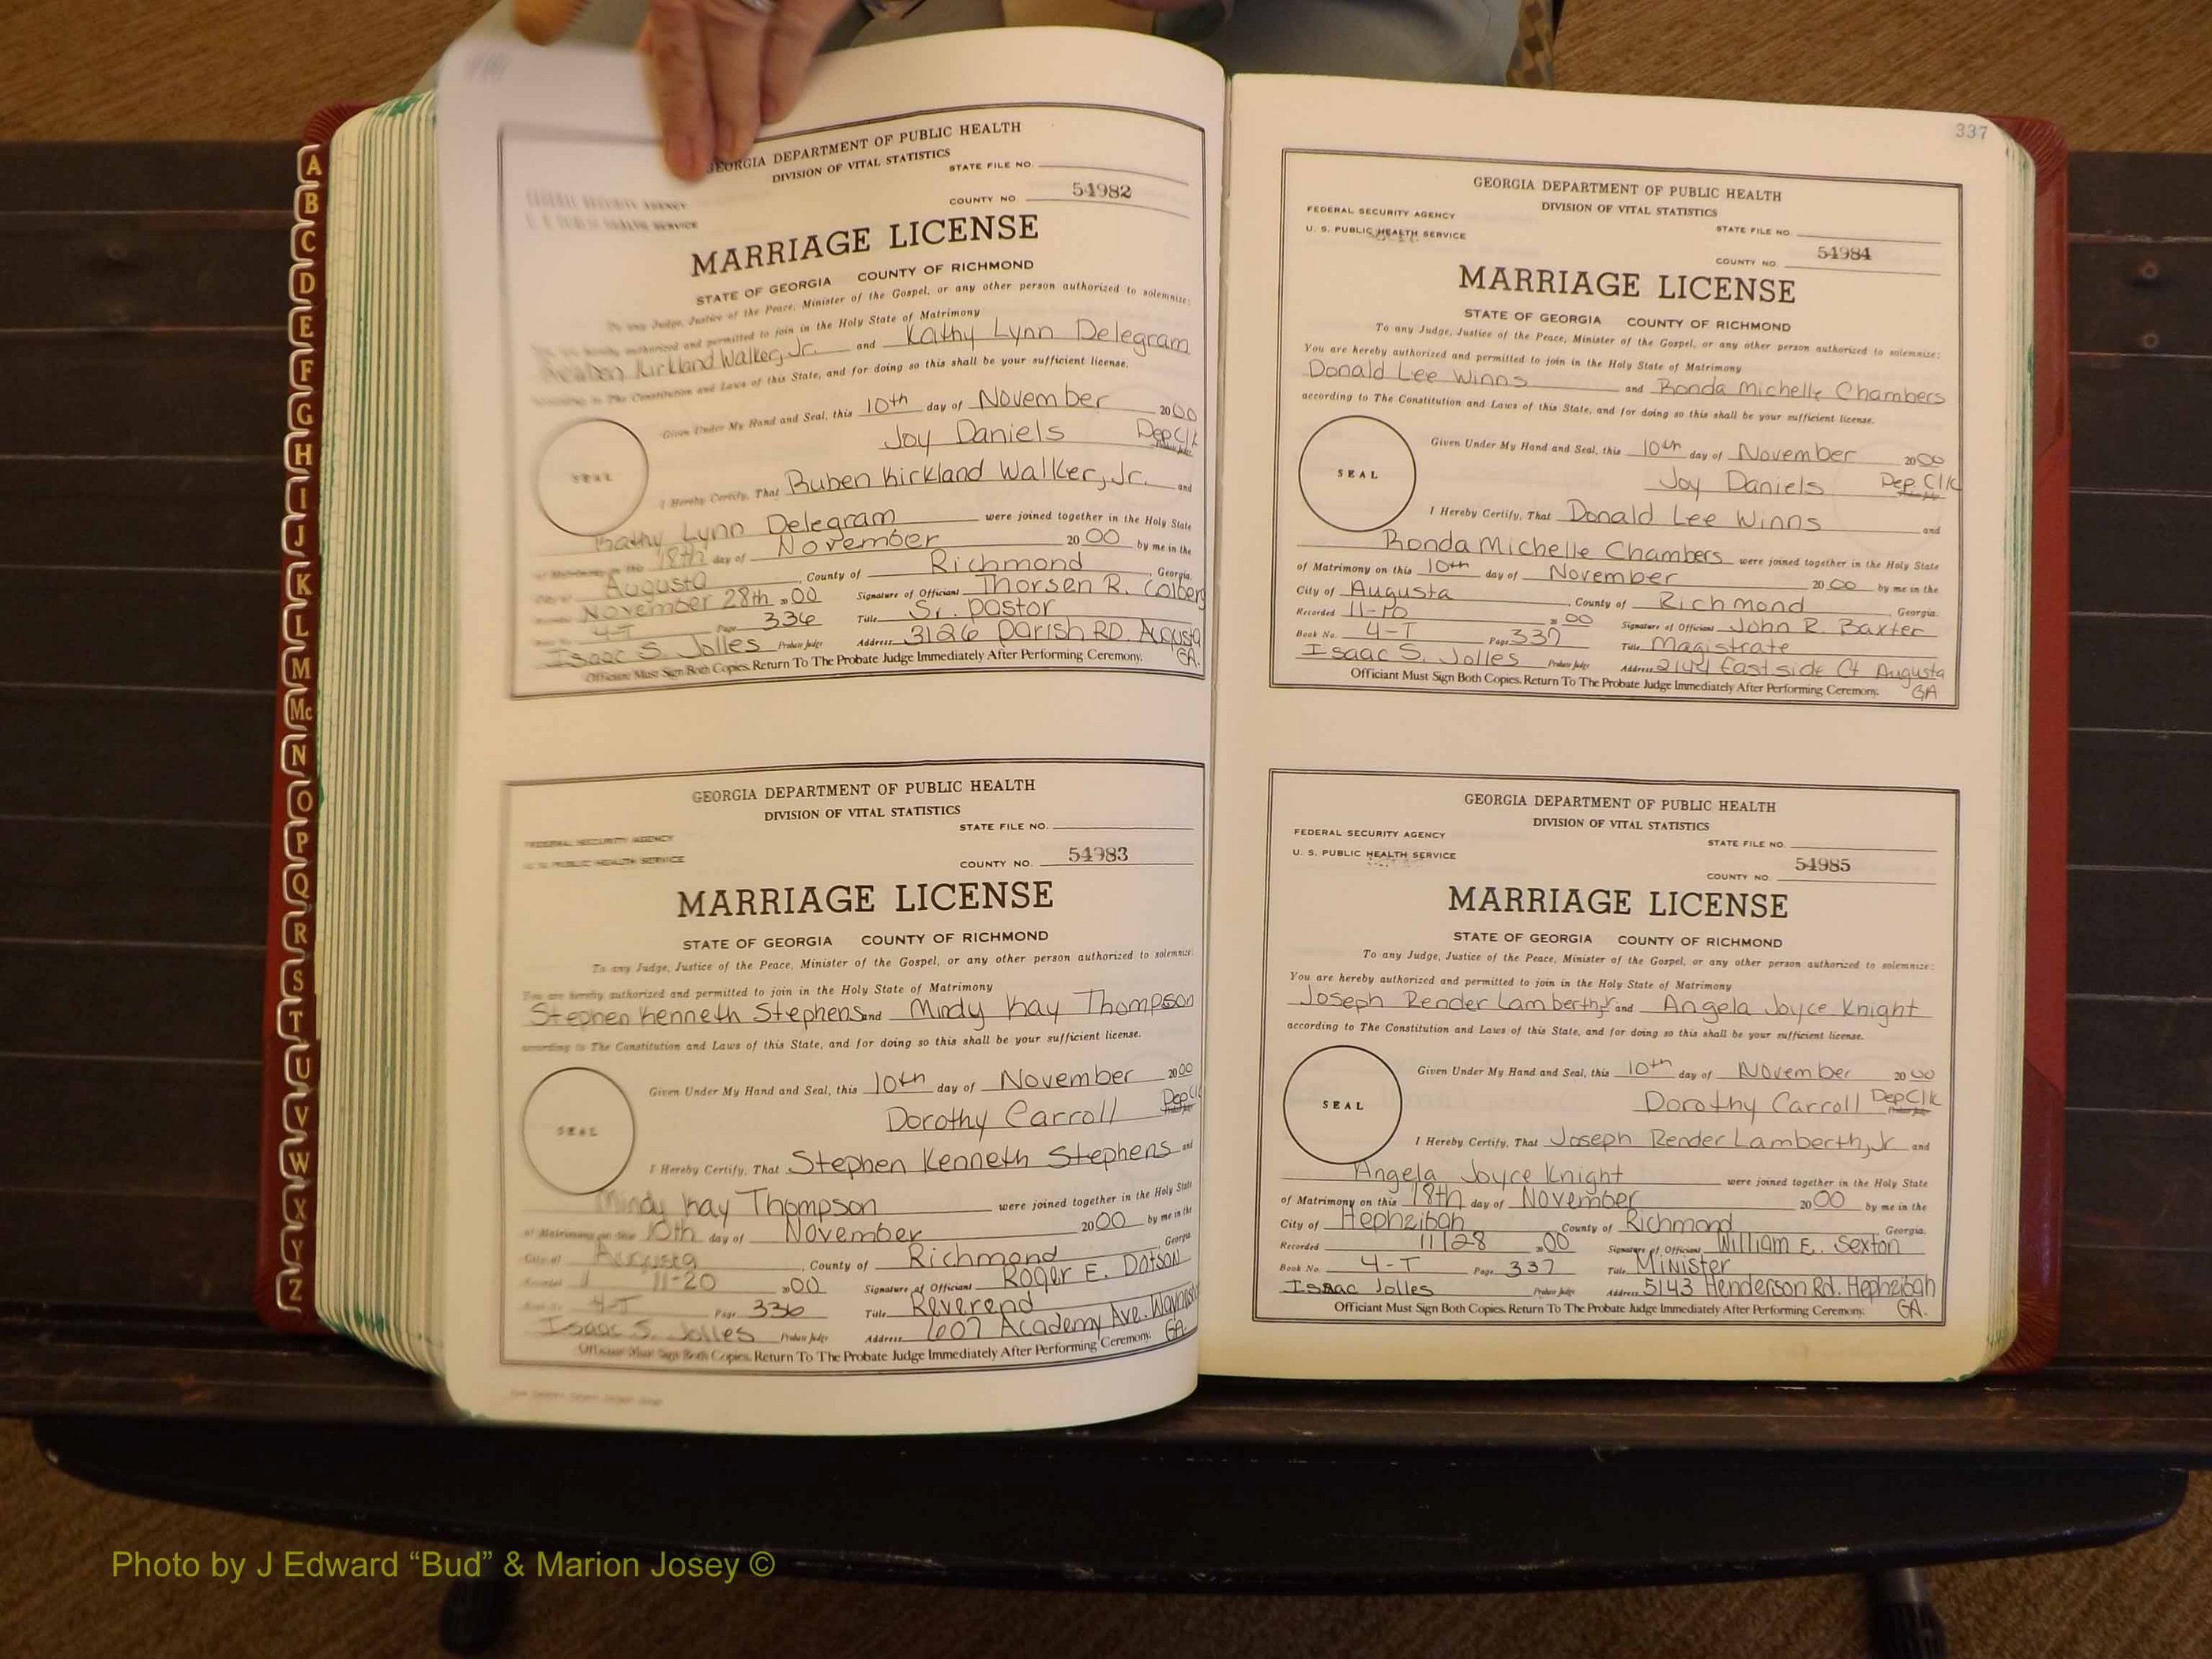 A
B
C
D
E
F
G
H
I
J
K
L
M
Mc
N
O
P
Q
R
S
T
U
V
W
X
Y
Z
GEORGIA DEPARTMENT OF PUBLIC HEALTH
DIVISION OF VITAL STATISTICS
STATE FILE NO.
FEDERAL SECURITY AGENCY
U. S. PUBLIC HEALTH SERVICE
COUNTY NO. 54982
MARRIAGE LICENSE
STATE OF GEORGIA COUNTY OF RICHMOND
To any Judge, Justice of the Peace, Minister of the Gospel, or any other person authorized to solemnize:
You are hereby authorized and permitted to join in the Holy State of Matrimony
Reuben Kirkland Walker, Jr. and Kathy Lynn Delegram
according to The Constitution and Laws of this State, and for doing so this shall be your sufficient license.
Given Under My Hand and Seal, this 10th day of November 2000
Joy Daniels Dep Clk
SEAL
I Hereby Certify, That Ruben Kirkland Walker, Jr. and
Kathy Lynn Delegram were joined together in the Holy State
of Matrimony on this 18th day of November 2000 by me in the
City of Augusta, County of Richmond, Georgia.
Recorded November 28th 2000 Signature of Officiant Thorsen R. Colberg
Book No. 4-T Page 336 Title Sr. Pastor
Isaac S. Jolles Probate Judge Address 3126 Parish RD. Augusta GA.
Officiant Must Sign Both Copies. Return To The Probate Judge Immediately After Performing Ceremony.
GEORGIA DEPARTMENT OF PUBLIC HEALTH
DIVISION OF VITAL STATISTICS
STATE FILE NO.
FEDERAL SECURITY AGENCY
U. S. PUBLIC HEALTH SERVICE
COUNTY NO. 54983
MARRIAGE LICENSE
STATE OF GEORGIA COUNTY OF RICHMOND
To any Judge, Justice of the Peace, Minister of the Gospel, or any other person authorized to solemnize:
You are hereby authorized and permitted to join in the Holy State of Matrimony
Stephen Kenneth Stephens and Mindy Kay Thompson
according to The Constitution and Laws of this State, and for doing so this shall be your sufficient license.
Given Under My Hand and Seal, this 10th day of November 2000
Dorothy Carroll Dep Clk
SEAL
I Hereby Certify, That Stephen Kenneth Stephens and
Mindy Kay Thompson were joined together in the Holy State
of Matrimony on this 10th day of November 2000 by me in the
City of Augusta, County of Richmond Georgia
Recorded 11-20 2000 Signature of Officiant Roger E. Dotson
Book No. 4-T Page 336 Title Reverend
Isaac S. Jolles Probate Judge Address 607 Academy Ave. GA.
Officiant Must Sign Both Copies. Return To The Probate Judge Immediately After Performing Ceremony.
337
GEORGIA DEPARTMENT OF PUBLIC HEALTH
DIVISION OF VITAL STATISTICS
FEDERAL SECURITY AGENCY
U. S. PUBLIC HEALTH SERVICE
STATE FILE NO.
COUNTY NO. 54984
MARRIAGE LICENSE
STATE OF GEORGIA COUNTY OF RICHMOND
To any Judge, Justice of the Peace, Minister of the Gospel, or any other person authorized to solemnize:
You are hereby authorized and permitted to join in the Holy State of Matrimony
Donald Lee Winns and Ronda Michelle Chambers
according to The Constitution and Laws of this State, and for doing so this shall be your sufficient license.
Given Under My Hand and Seal, this 10th day of November 2000
Joy Daniels Dep. Clk
SEAL
I Hereby Certify, That Donald Lee Winns and
Ronda Michelle Chambers were joined together in the Holy State
of Matrimony on this 10th day of November 2000 by me in the
City of Augusta, County of Richmond, Georgia.
Recorded 11-10 2000 Signature of Officiant John R. Baxter
Book No. 4-T Page 337 Title Magistrate
Isaac S. Jolles Probate Judge Address 2144 Eastside Ct Augusta GA
Officiant Must Sign Both Copies. Return To The Probate Judge Immediately After Performing Ceremony.
GEORGIA DEPARTMENT OF PUBLIC HEALTH
DIVISION OF VITAL STATISTICS
FEDERAL SECURITY AGENCY
U. S. PUBLIC HEALTH SERVICE
STATE FILE NO.
COUNTY NO. 54985
MARRIAGE LICENSE
STATE OF GEORGIA COUNTY OF RICHMOND
To any Judge, Justice of the Peace, Minister of the Gospel, or any other person authorized to solemnize:
You are hereby authorized and permitted to join in the Holy State of Matrimony
Joseph Render Lamberth, Jr and Angela Joyce Knight
according to The Constitution and Laws of this State, and for doing so this shall be your sufficient license.
Given Under My Hand and Seal, this 10th day of November 2000
Dorothy Carroll Dep Clk
SEAL
I Hereby Certify, That Joseph Render Lamberth, Jr and
Angela Joyce Knight were joined together in the Holy State
of Matrimony on this 18th day of November 2000 by me in the
City of Hephzibah County of Richmond Georgia.
Recorded 11/28 2000 Signature of Officiant William E. Sexton
Book No. 4-T Page 337 Title Minister
Isaac Jolles Probate Judge Address 5143 Henderson Rd. Hephzibah GA.
Officiant Must Sign Both Copies. Return To The Probate Judge Immediately After Performing Ceremony.
Photo by J Edward “Bud” & Marion Josey ©